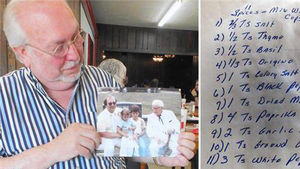 11 Spices – Mix W
1) ⅔ Ts Salt
2) ½ Ts Thyme
3) ½ Ts Basil
4) ⅓ Ts Origino
5) 1 Ts Celery Salt
6) 1 Ts Black
7) 1 Ts Dried M
8) 4 Ts Paprika
9) 2 Ts Garlic
10) 1 Ts Ground
11) 3 Ts White P